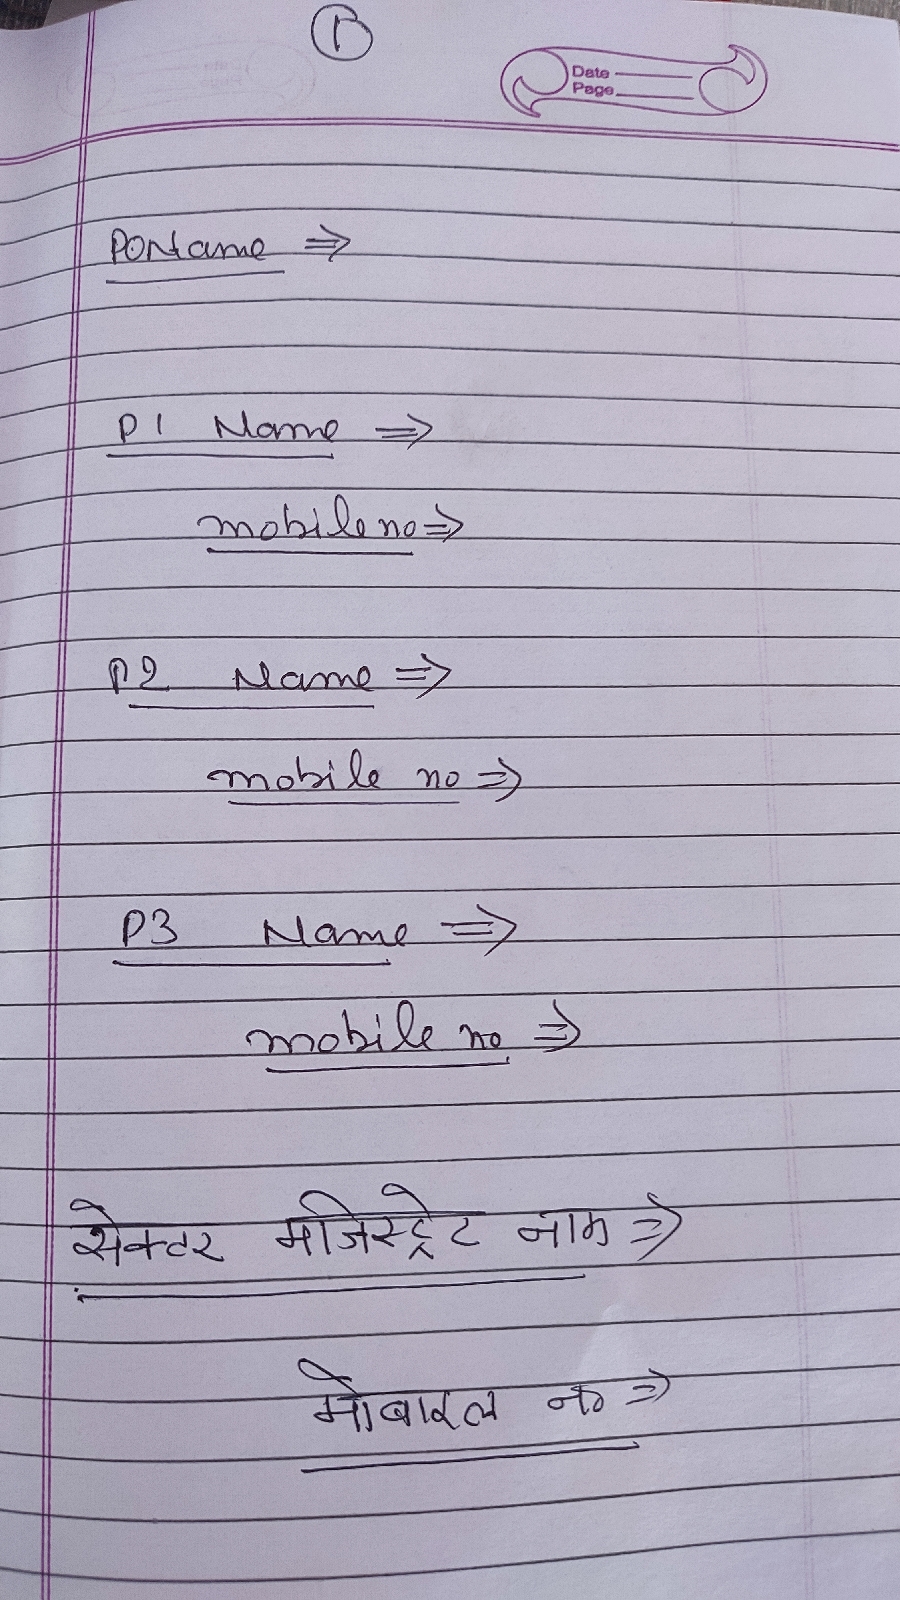 ①
Date
Page
PO Name ⇒
P1 Name ⇒
mobile no ⇒
P2 Name ⇒
mobile no ⇒
P3 Name ⇒
mobile no ⇒
सेक्टर मजिस्ट्रेट नाम ⇒
मोबाइल न० ⇒